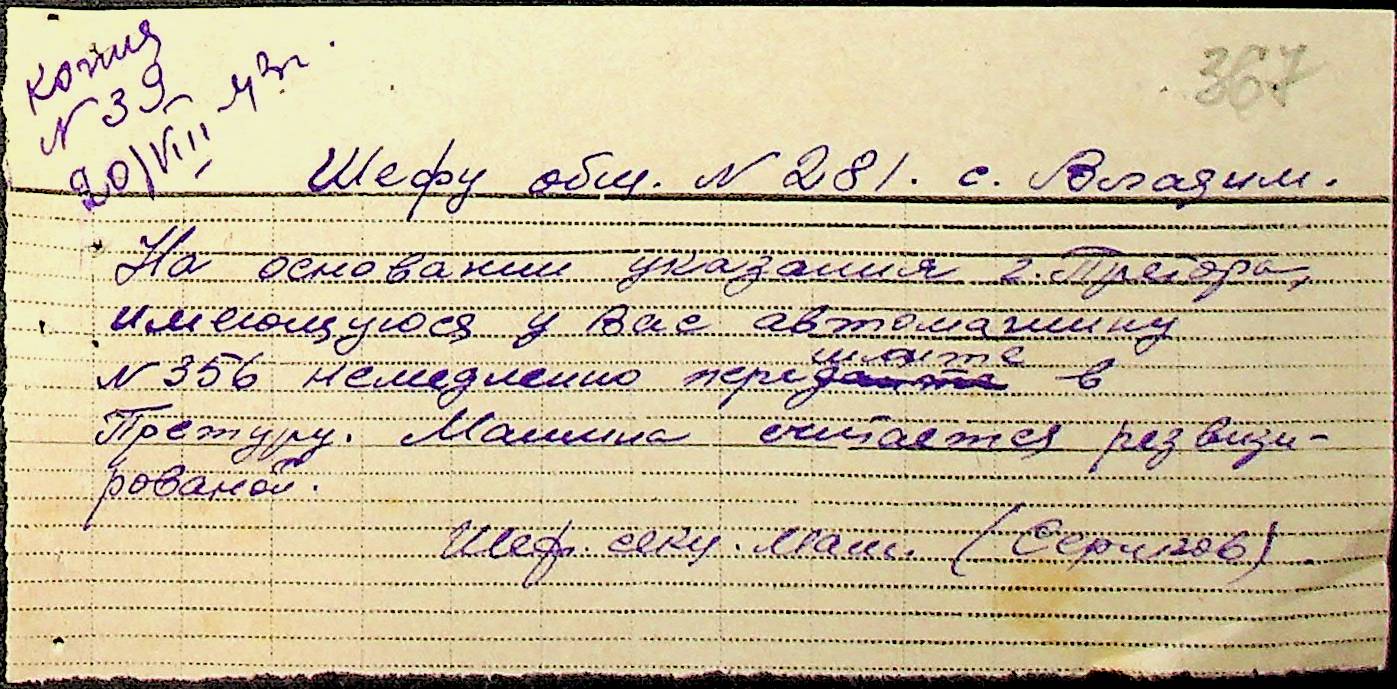 Копия
N 39
20/VIII 43г.
367
Шефу общ. N 281. с. Владим.
На основании указания г. Претора,
имеющуюся у Вас автомашину
шлите
N 356 немедленно передайте в
Претуру. Машина считается резвизи-
рованой.
Шеф. секц. маш. (Серигов)